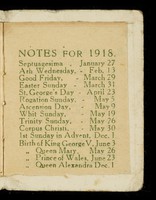 NOTES FOR 1918.
Septuagesima . January 27
Ash Wednesday, . Feb. 13
Good Friday, . March 29
Easter Sunday . March 31
St. George's Day . April 23
Rogation Sunday, . May 5
Ascension Day, . May 9
Whit Sunday, . May 19
Trinity Sunday, . May 26
Corpus Christi, . May 30
1st Sunday in Advent, Dec. 1
Birth of King George V, June 3
„ Queen Mary, May 26
„ Prince of Wales, June 23
„ Queen Alexandra Dec. 1